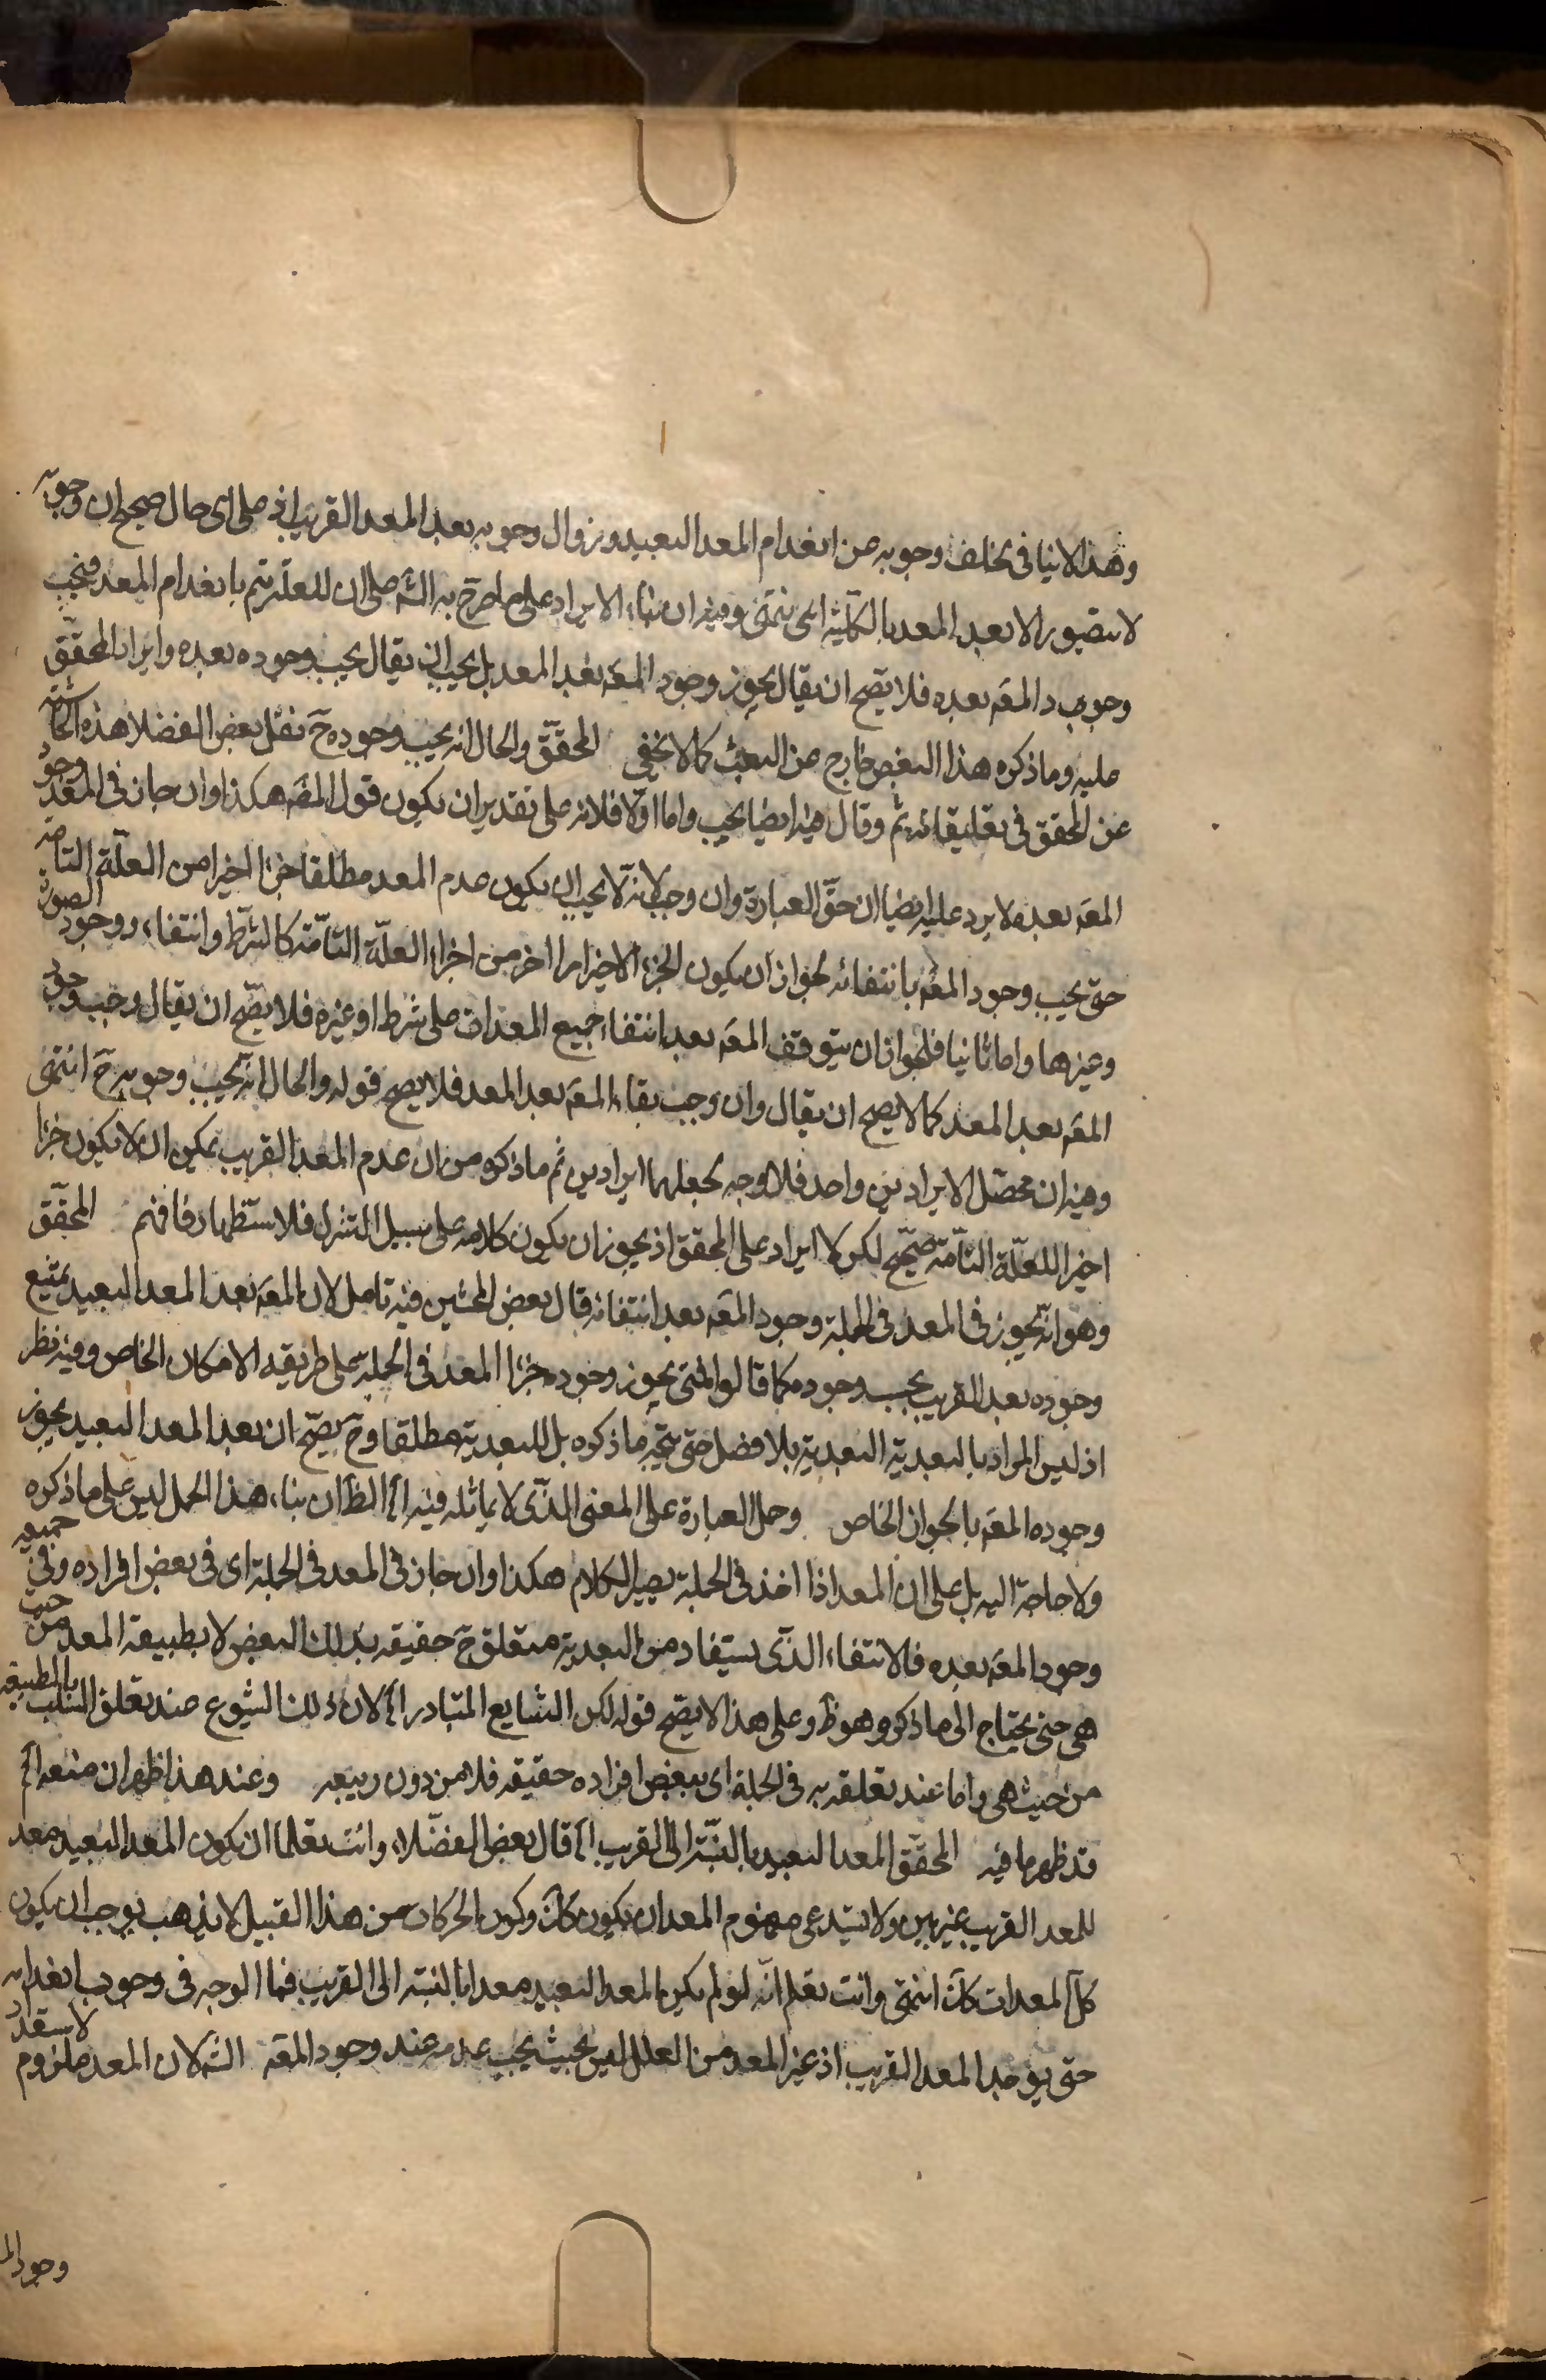 وهذا لا ينافى تخلف وجوبه عن انعدام المعد البعيد وزوال وجوبه بعد المعد القريب اذ على اى حال صحيح ان وجوبه
لا يتصور الا بعد المعد بالكلية انتهى وفيه ان بناء الايراد على ما صرح به الش على ان للعلة تتم بانعدام المعد فيجب
وجوب د المعه بعده فلا يصح ان يقال يجوز وجود المعه بعد المعد بل يجب ان يقال يجب وجوده بعده وايراد المحقق
عليه وما ذكره هذا البعض خارج عن البحث كما لا يخفى المحقق والحال انه يجب وجوده ح نقل بعض الفضلا هذه الحاشية
عن المحقق فى تعليقاته ثم وقال فيه ايضا بحث واما اولا فلانه على تقدير ان يكون قول المصه هكذا وان جاز فى المعد وجود
المعه بعده لا يرد عليه ايضا ان حق العبارة وان وجب لانه لا يجب ان يكون عدم المعد مطلقا جزءا اخيرا من العلة التامة
حتى يجب وجود المعه بانتفائه لجواز ان يكون الجزء الاخير امرا اخر من اجزاء العلة التامة كالشرط وانتفاء، ووجود الصورة
وغيرها واما ثانيا فلجواز ان يتوقف المعه بعد انتفاء جميع المعدات على شرط او غيره فلا يصح ان يقال وجب وجود
المعه بعد المعد كما لا يصح ان يقال وان وجب بقاء المعه بعد المعد فلا يصح قوله والحال انه يجب وجوبه ح انتهى
وفيه ان محصل الايرادين واحد فلا وجه لجعلهما ايرادين ثم ما ذكره من ان عدم المعد القريب يمكن ان لا يكون جزءا
اخيرا للعلة التامة صحيح لكن لا ايراد على المحقق اذ يجوز ان يكون كلامه على سبيل التنزل فلا استظهار فافهم المحقق
وهو انه يجوز فى المعد فى الجملة وجود المعه بعد انتفائه قال بعض المحشين فيه تامل لان المعه بعد المعد البعيد يمتنع
وجوده بعد القريب يجب وجوده كما قالوا فمتى يجوز وجوده جزءا المعد فى الجملة على طريقه الامكان الخاص وفيه نظر
اذ ليس المراد بالبعدية البعدية بلا فصل حتى يتجه ما ذكره بل للبعدية مطلقا وح يصح ان بعد المعد البعيد يجوز
وجوده المعه بالجواز الخاص وحمل العبارة على المعنى الذى لا يماثله فيه اه الظ ان بناء، هذا الحمل ليس على ما ذكره
ولا حاجة اليه بل على ان المعد اذا اخذ فى الجملة يصير الكلام هكذا وان جاز فى المعد فى الجملة اى فى بعض افراده وفى جميعه
وجود المعه بعده فالانتفاء، الذى يستفاد من البعدية متعلق ح حقيقه بذلك البعض لا بطبيعة المعد من حيث
هى حتى يحتاج الى ما ذكر وهو ظ وعلى هذا لا يصح قوله لكن الشايع المتبادر اه لان ذلك الشيوع عند تعلق السلب بالطبيعه
من حيث هى واما عند تعلقه به فى الجملة اى ببعض افراده حقيقه فلا من دون ريبه وعند هذا ظهر ان منعه اه
قد ظهر ما فيه المحقق المعد البعيد بالنسبة الى القريب اه قال بعض الفضلاء، وانت تعلم ان كون المعد البعيد معد
للمعد القريب غير بين ولا يستدعى مفهوم المعد ان يكون كك وكون الحركات من هذا القبيل لا يذهب يوجب ان يكون
كل المعدات كك انتهى وانت تعلم انه لو لم يكن المعد البعيد معدا بالنسبة الى القريب فما الوجه فى وجوب انعدامه
حتى يوجد المعد القريب اذ غير المعد من العلل ليس بحيث يجب عدمه عند وجود المعه الش لان المعد ملزوم لاستعداد
وجود الم